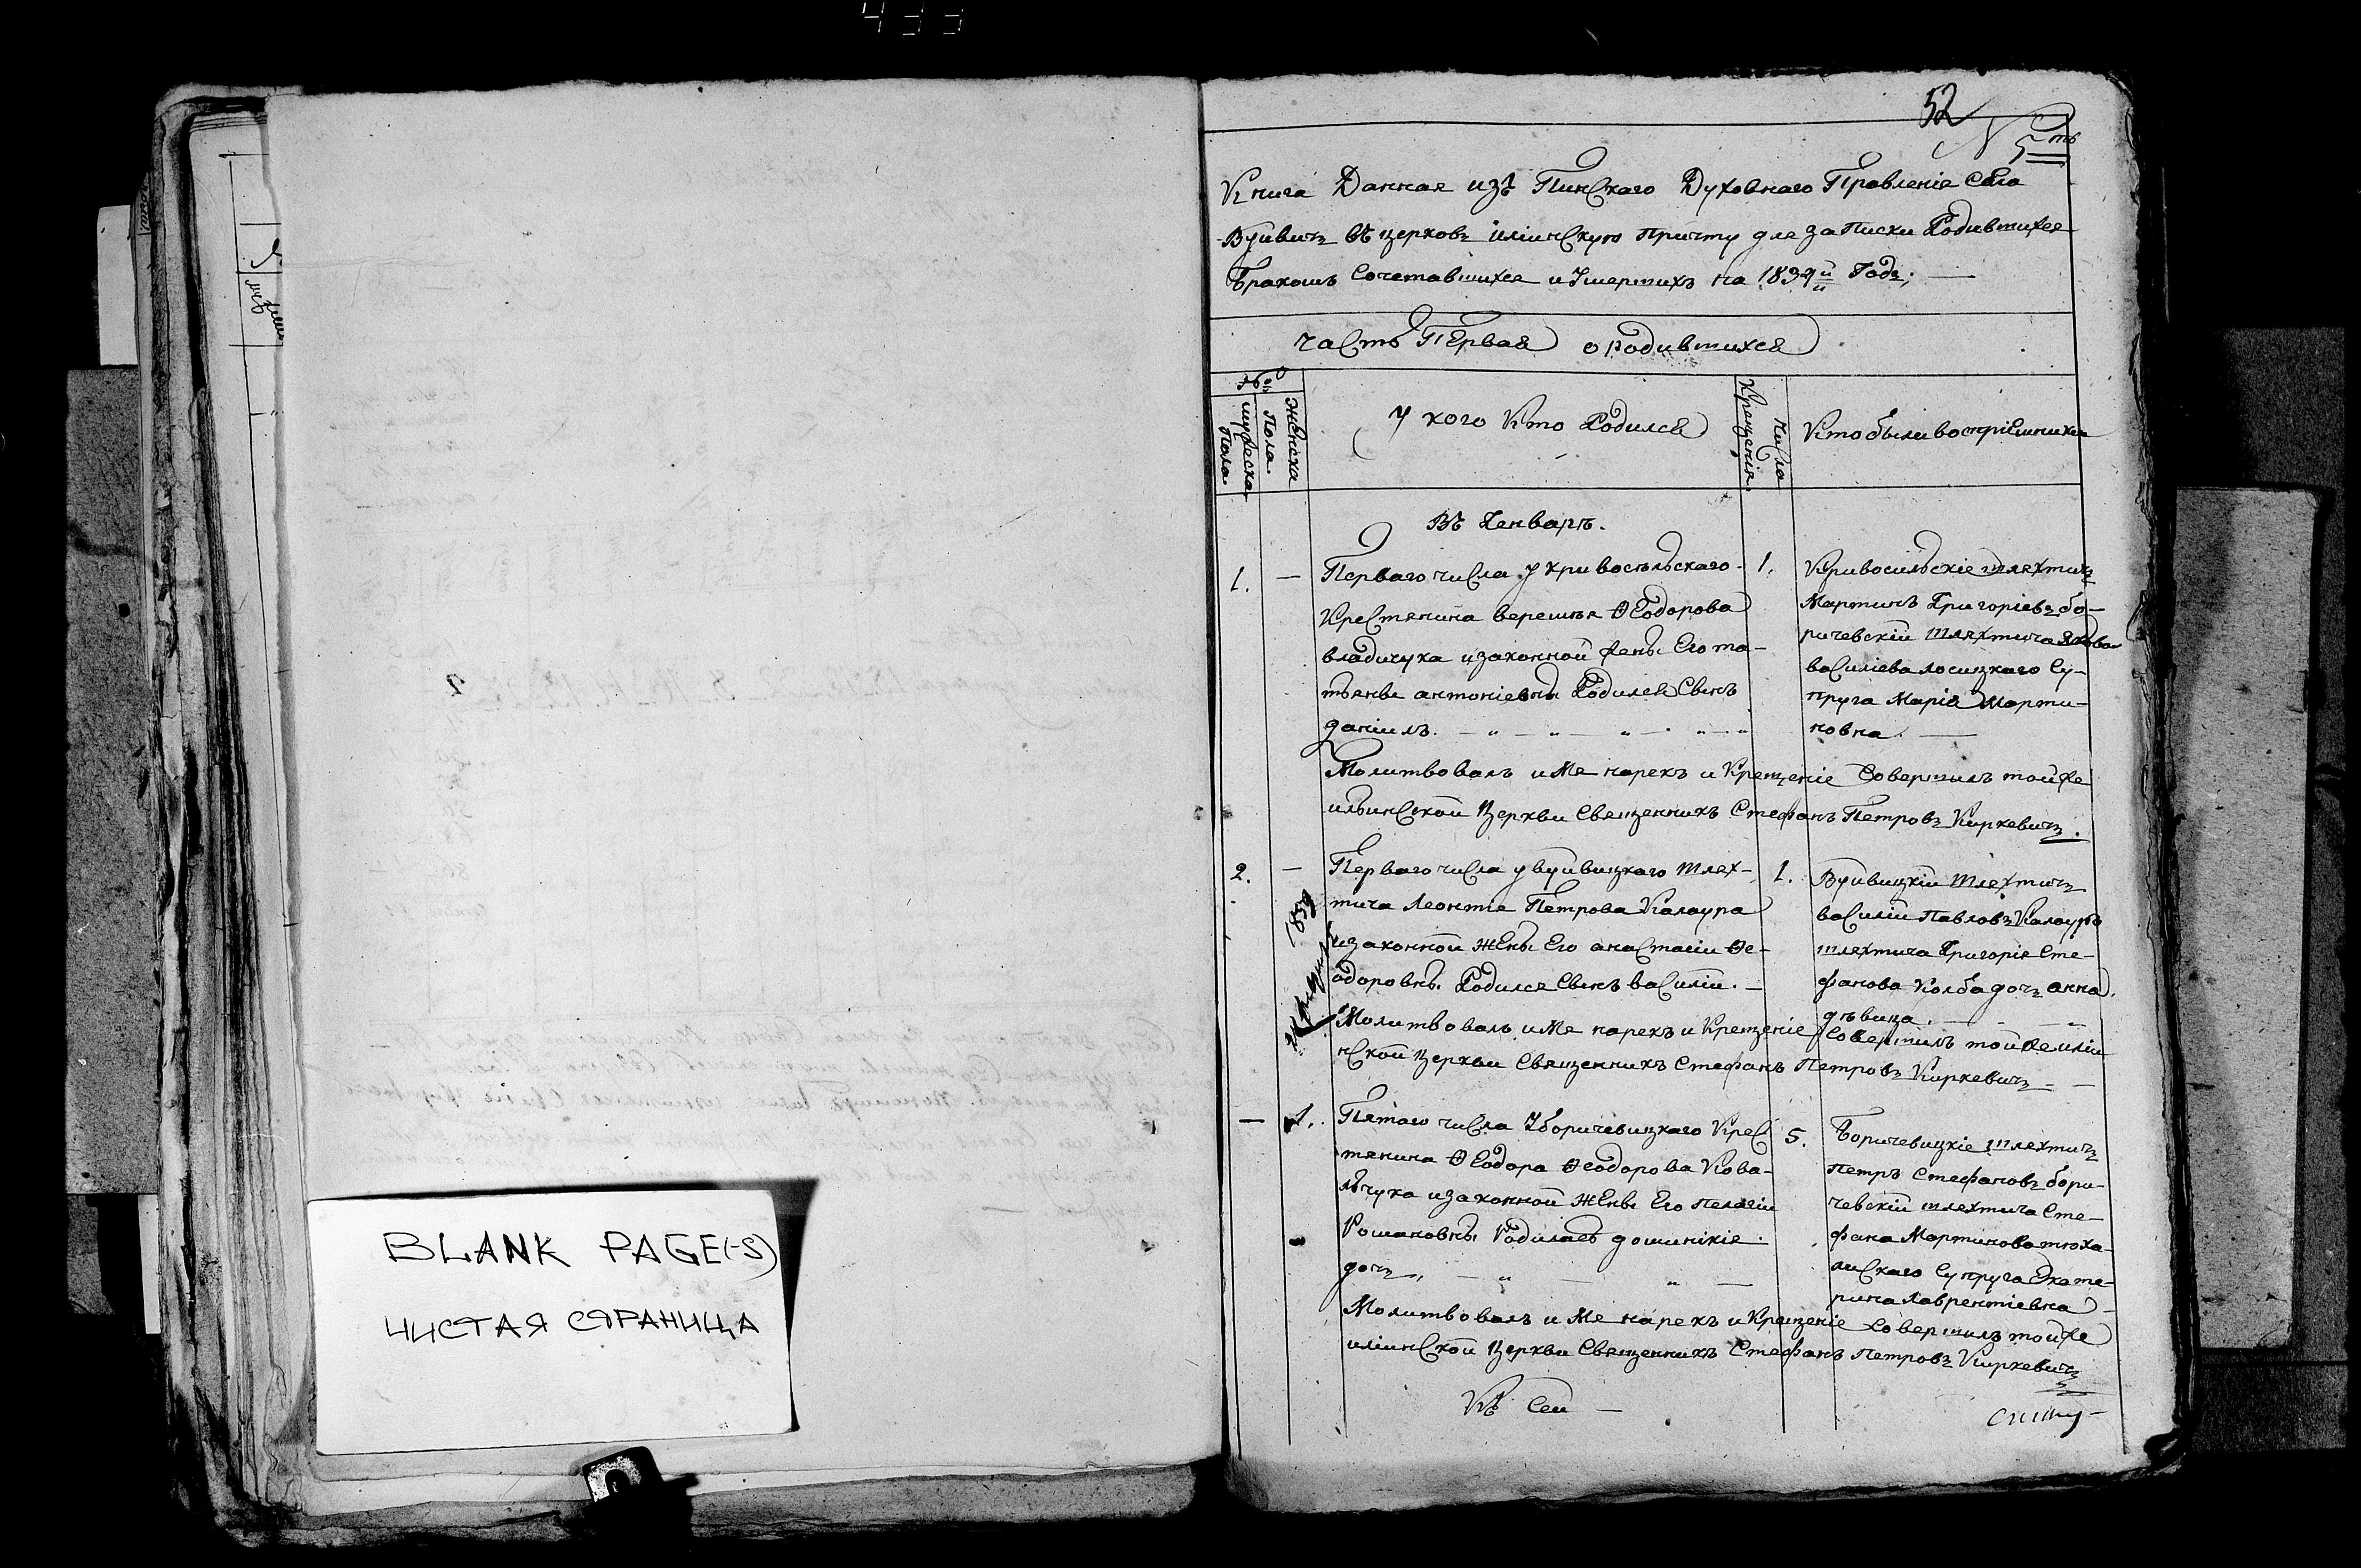 433
52
N 5 ть
Книга Данная изъ Пинскаго Духовнаго Правленіе Села
Вуйвичъ въ церковъ иліинскую Причту для записки Родившихся
Бракомъ Сочетавшихся и Умершихъ на 1834й Годъ;
часть Первая о Родившихся
Мужеска Пола.
Женска Пола.
У кого Кто Родился
Числа Крещенія.
Кто были воспріемники
Въ Генваръ.
1. — Перваго числа у кривосельскаго 1.
Крестянина
Феодорова
владичука изаконной жены Его та-
тьяны антоніевны Родился Сынъ
даніилъ.
Кривосильскіе шляхтичъ
Мартинъ Григоріевъ бо-
ричевскій шляхтича
василіева лосицкаго Су-
пруга Марія Марти-
новна.
Молитвовалъ и Мя нарекъ и Крещеніе Совершилъ тойже
ильинской Церкви Священникъ Стефанъ Петровъ Киркевичъ.
2. — Перваго числа у вуйвицкаго шлях- 1.
тича Леонтія Петрова Калаура
изаконной жены Его анастасіи Фе-
одоровны Родился Сынъ василій.
Вуйвицкій Шляхтичъ
василій Павловъ Калауръ
шляхтича Григорія Сте-
фанова Колба дочъ анна
дѣвица.
Молитвовалъ и Мя нарекъ и Крещеніе Совершилъ тойже иліи-
нской Церкви Священникъ Стефанъ Петровъ Киркевичъ
— 1. Пятаго числа Уборичевицкаго Крес 5.
тянина Феодора Феодорова Кова-
льчука изаконной Жены Его Пелагіи
Романовны Родилась доминикіе
дочъ,
Боричевицкіе шляхтичъ
Петръ Стефановъ бори-
чевскій шляхтича Сте-
фана Мартинова тюха-
лискаго Супруга Екате-
рина лаврентіевна
Молитвовалъ и Мя нарекъ и Крещеніе Совершилъ тойже
иліинской Церкви Священникъ Стефанъ Петровъ Киркевичъ
Къ Сей
BLANK PAGE(-S)
ЧИСТАЯ СТРАНИЦА